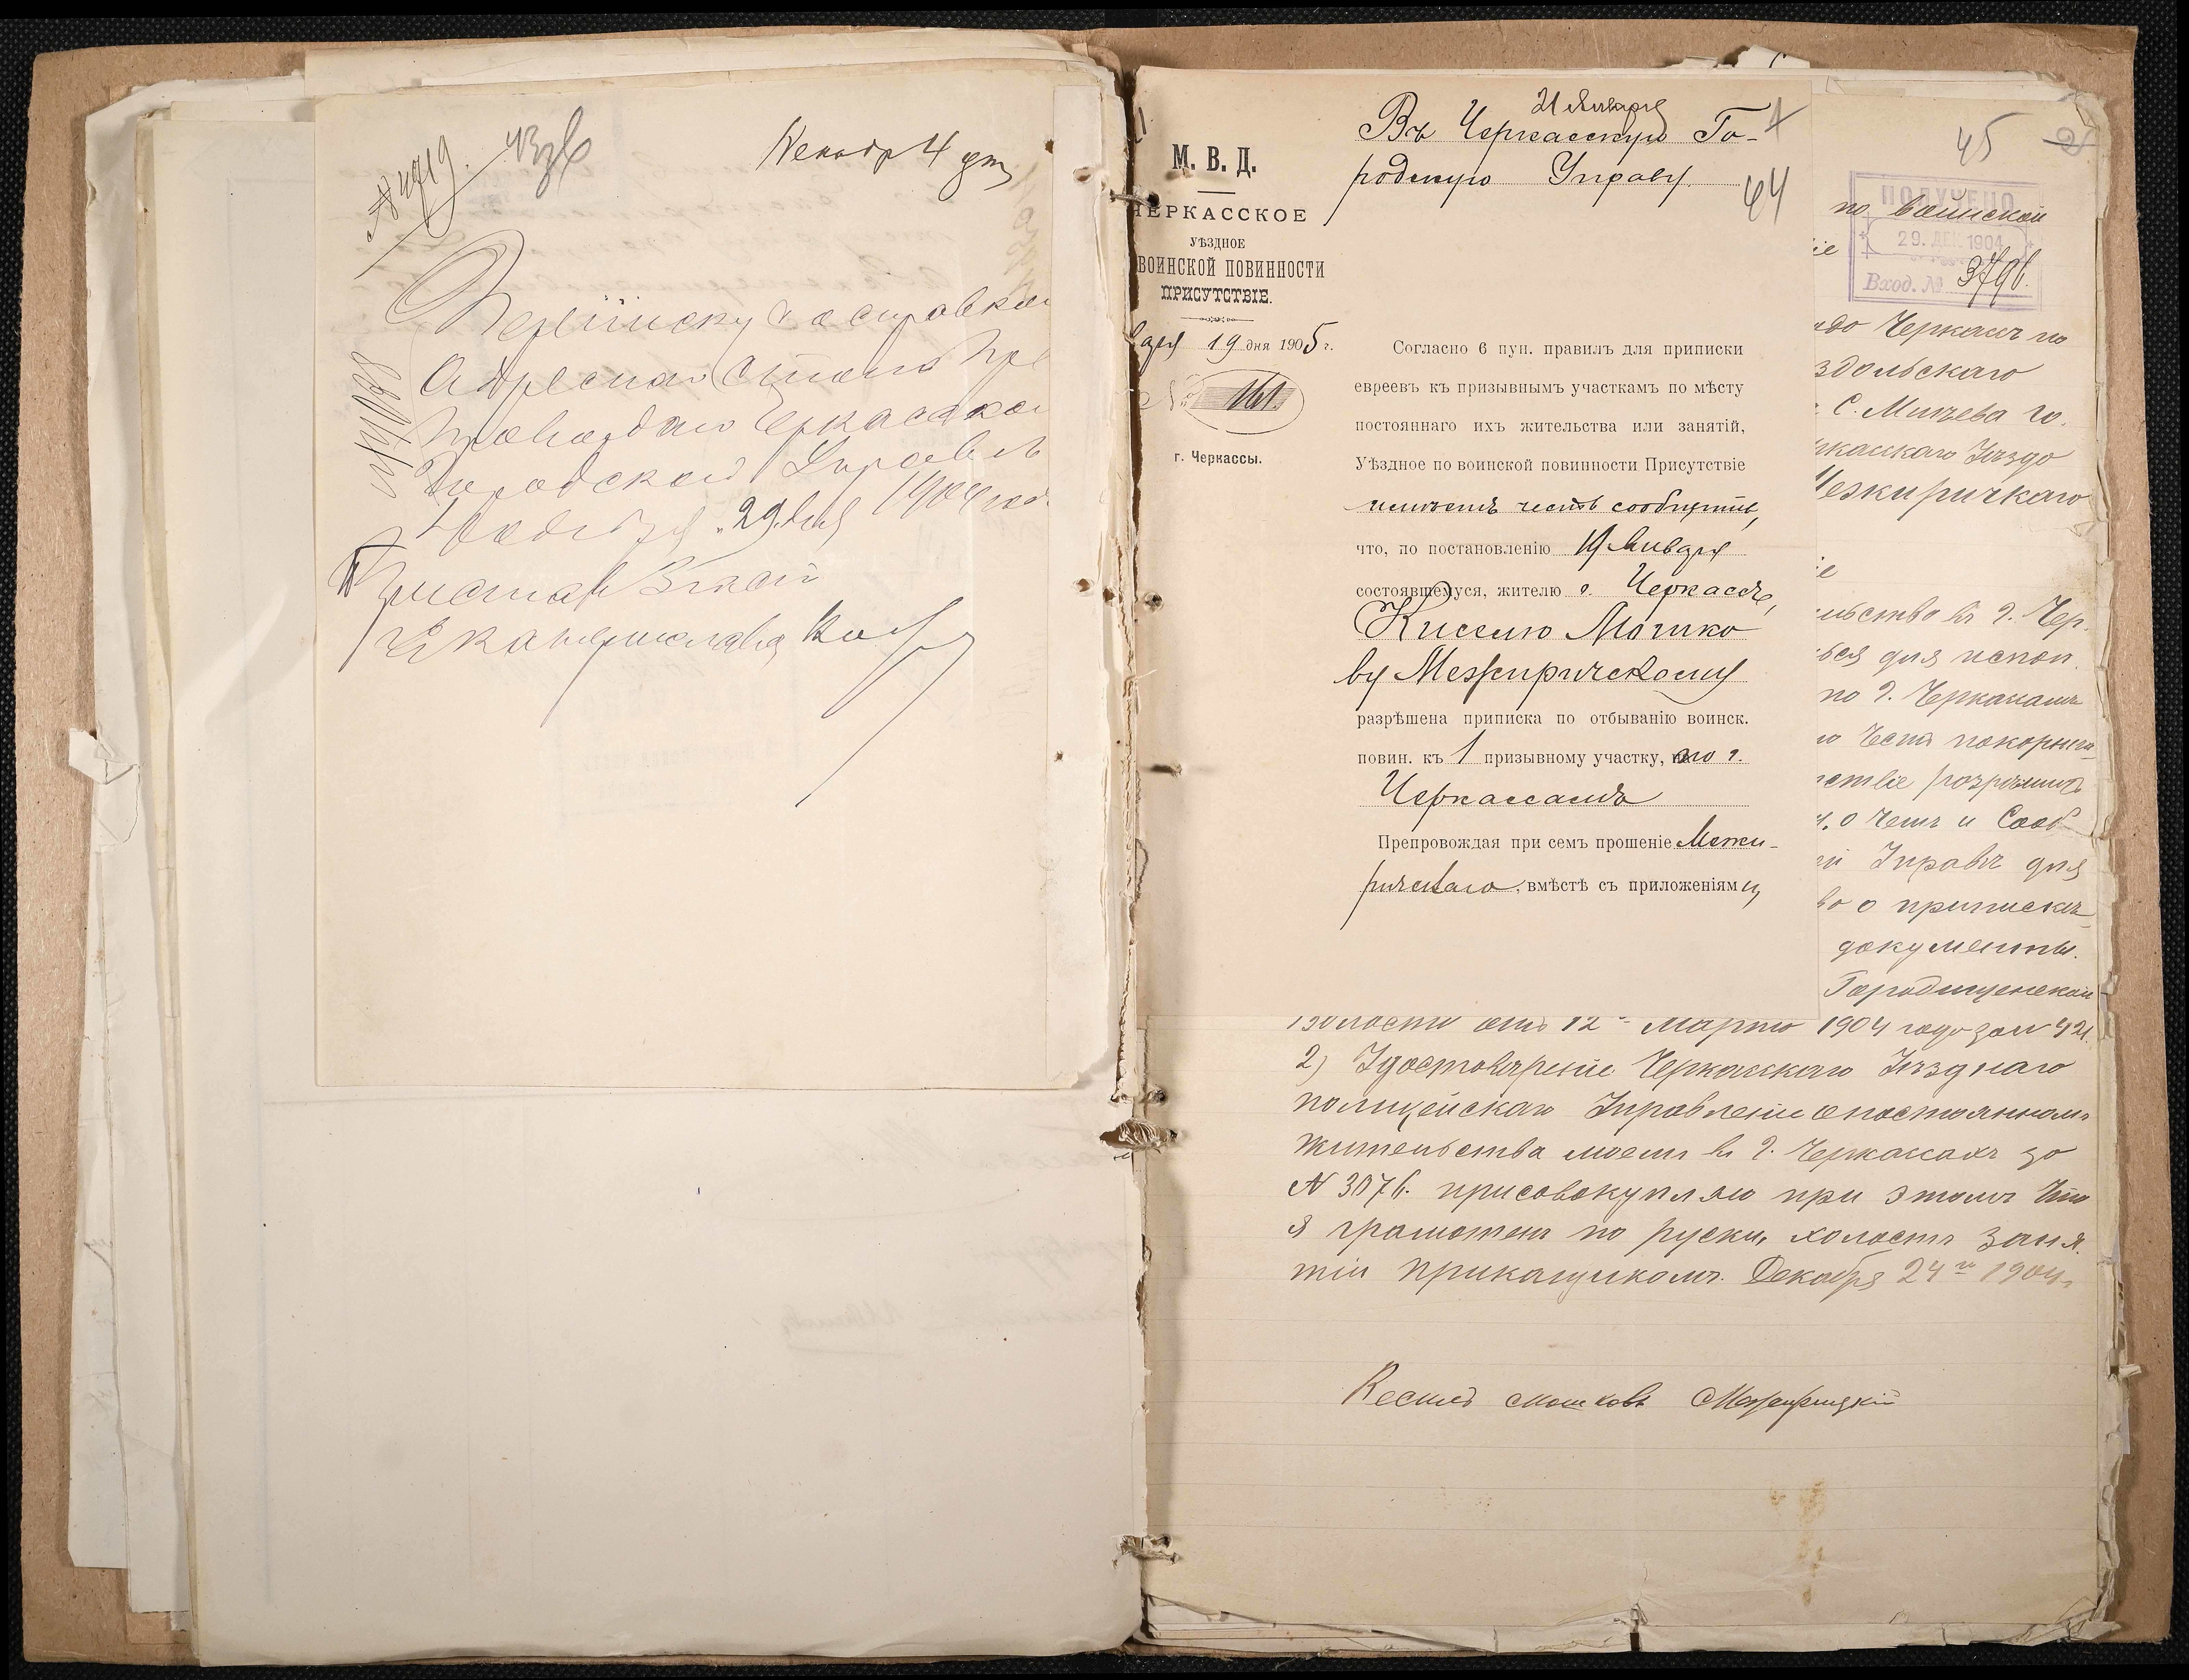 Декабр 4 дня
Переписку съ справкою
Адреснаго Стола пре
провождаю Черкасской
Городской Управѣ
Ноября 29 дня 1904 года
Приставъ 3 части
г. Екатеринослава
21 Января
Въ Черкасскую Го-
родскую Управу.
44
М. В. Д.
ЧЕРКАССКОЕ
УѢЗДНОЕ
ВОИНСКОЙ ПОВИННОСТИ
ПРИСУТСТВІЕ.
19 дня 1905 г.
№ 161.
г. Черкассы.
Согласно 6 пун. правилъ для приписки
евреевъ къ призывнымъ участкамъ по мѣсту
постояннаго ихъ жительства или занятій,
Уѣздное по воинской повинности Присутствіе
имѣетъ честь сообщить,
что, по постановленію 19 Января
состоявшемуся, жителю г. Черкассъ,
Кисилю Мошко
ву Межиричскому
разрѣшена приписка по отбыванію воинск.
повин. къ 1 призывному участку, по г.
Черкассамъ
Препровождая при семъ прошеніе Межи-
ричскаго, вмѣстѣ съ приложеніями,
45
ПОЛУЧЕНО
29. ДЕК. 1904
Вход. № 3796.
по воинской
іе
Черкассъ по
здольскаго
С. Мищева го.
ркасскаго Уѣздо
Межиричкаго
іе
ельство въ г. Чер.
ься для испол.
по г. Черкасамъ
го Честь покорнѣй
тствіе розрѣшить
ч. о чемъ и Сооб
ой Управѣ для
во о припискѣ
документы.
Городищенской
волости отъ 12го марта 1904 года за № 421.
2) Удостовѣреніе Черкасскаго Уѣзднаго
полицейскаго Управленіе о постоянномъ
жительства моемъ въ г. Черкассахъ за
№ 3076. присовокупляю при этомъ что
я грамотенъ по руски, холостъ заня
тіи прикащикомъ. Декабря 24го 1904г.
Кесиль Мошковъ Межирицкій